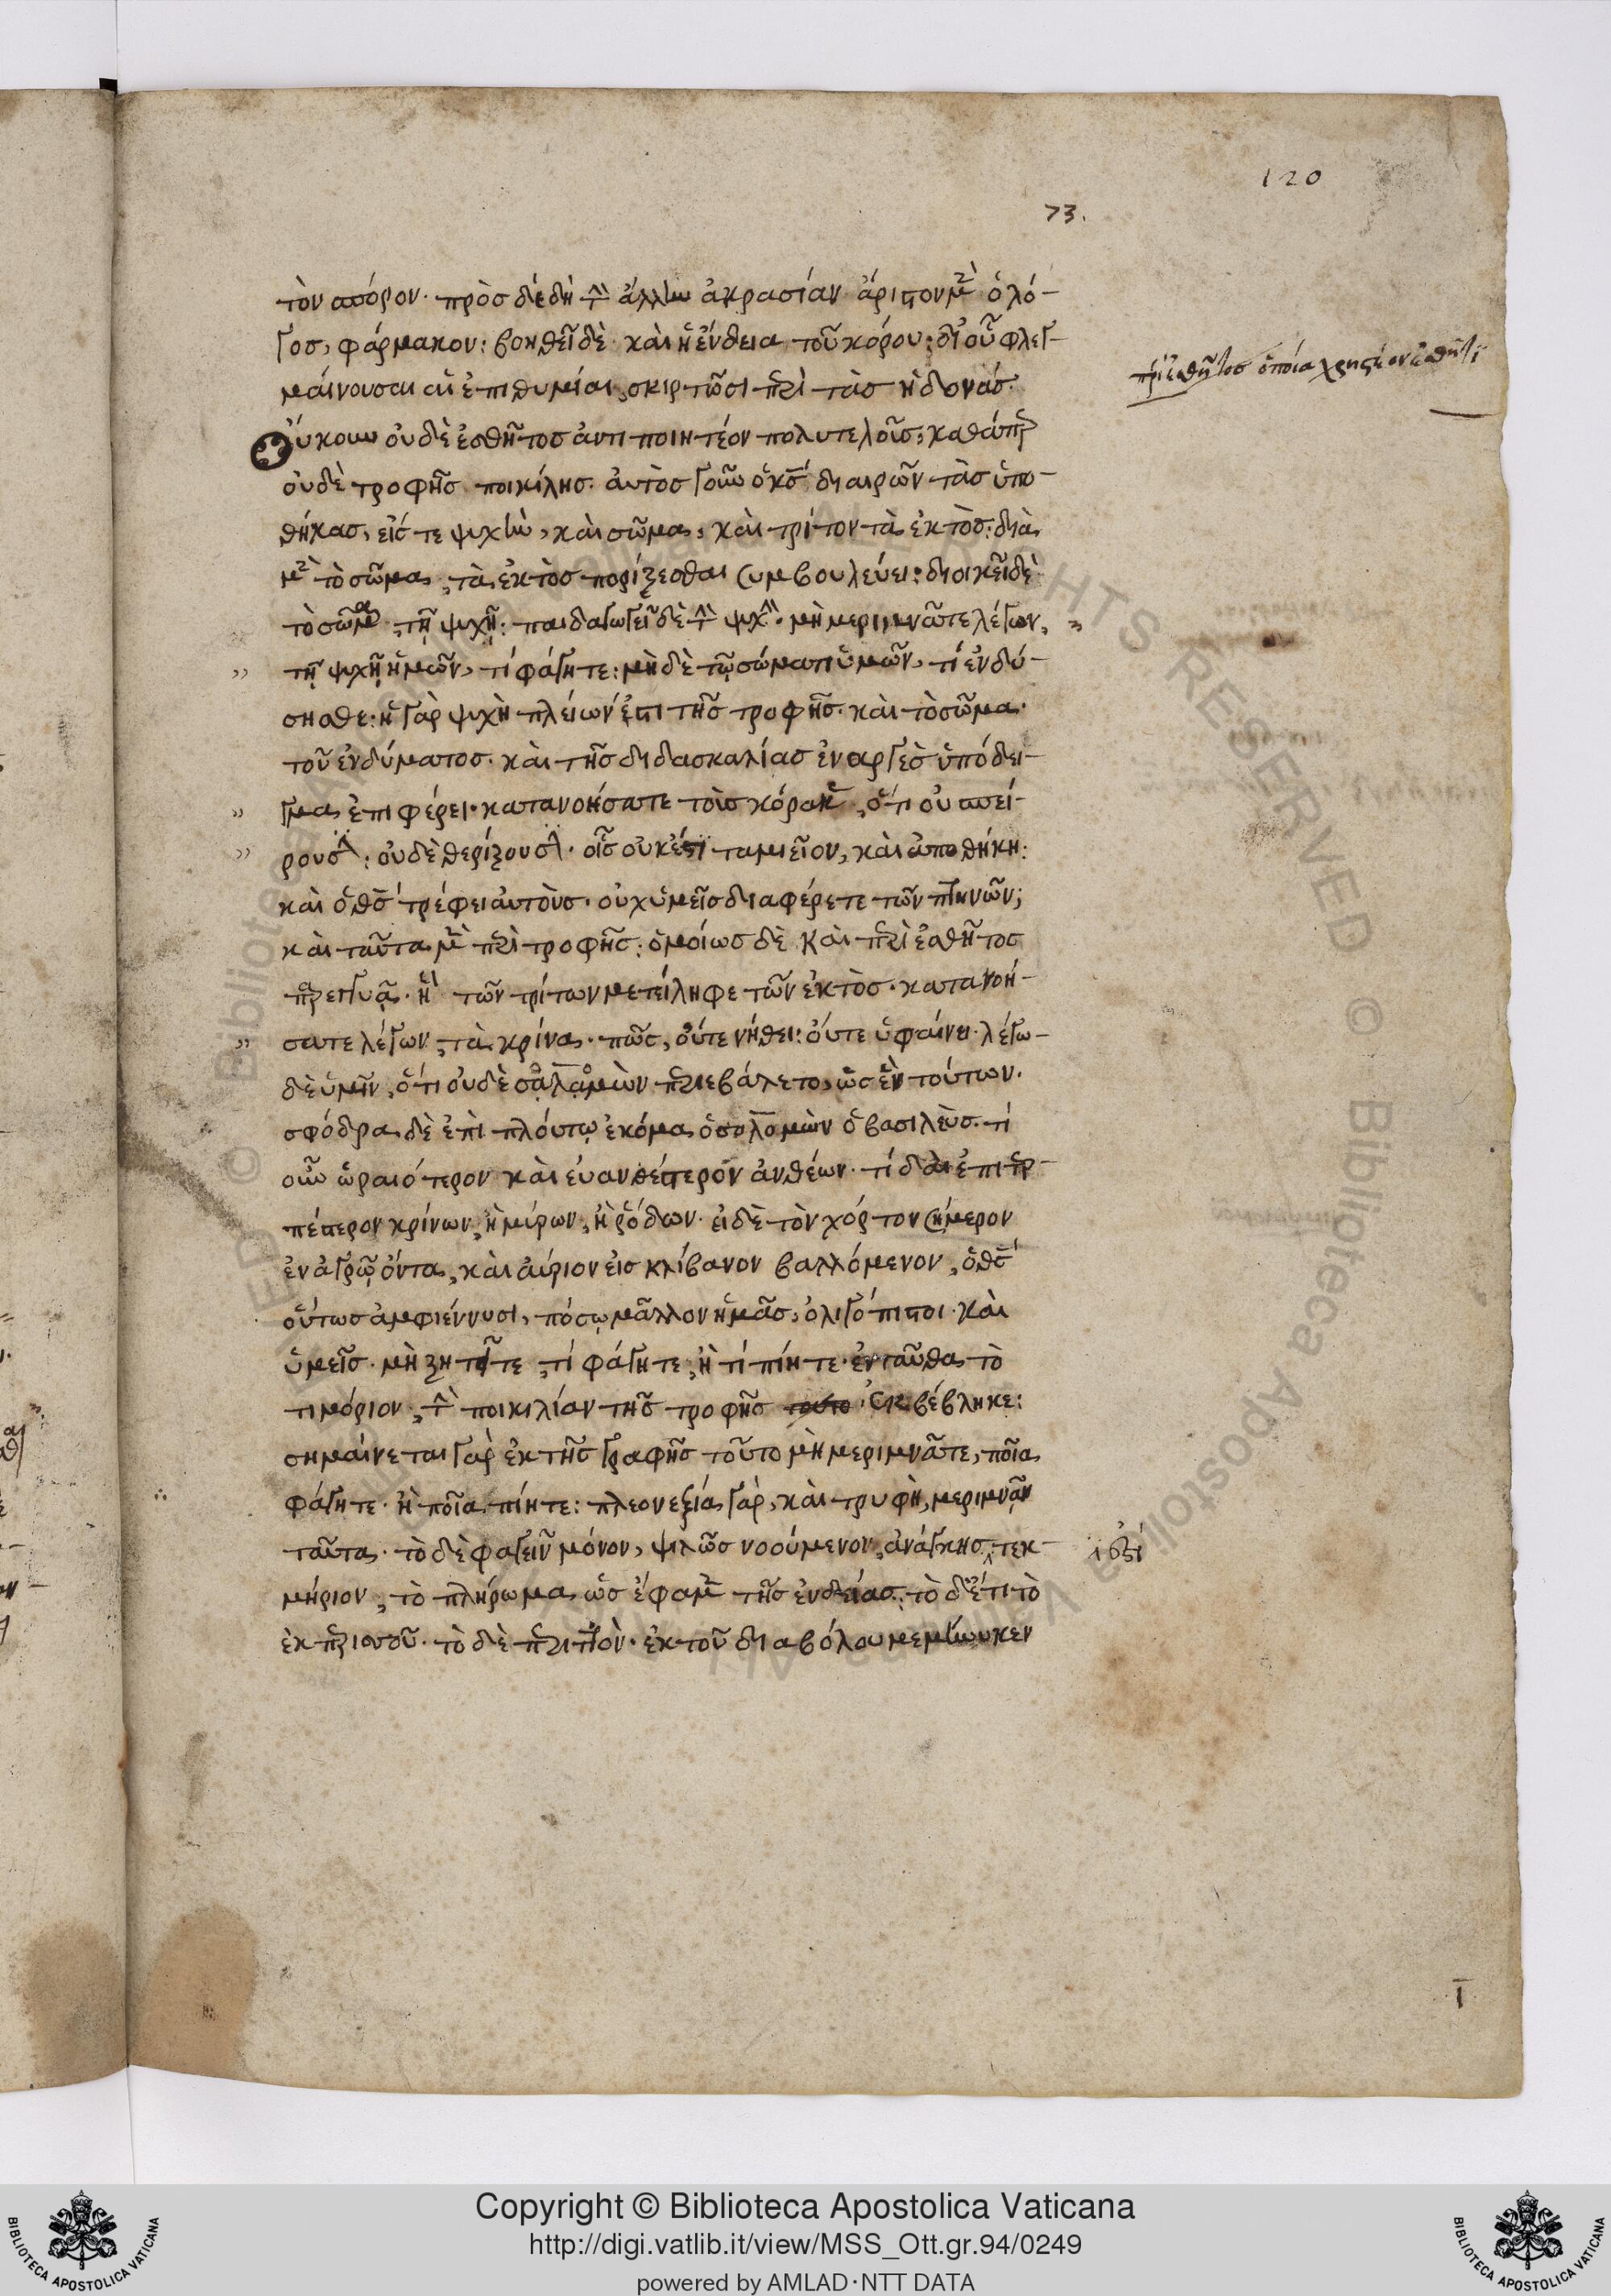 120
73.
τὸν σπόρον. πρὸς δὲ δὴ τὴν ἄλλην ἀκρασίαν ἄριστον μὲν ὁ λό-
γος, φάρμακον: βοηθεῖ δὲ καὶ ἡ ἔνδεια τοῦ κόρου: δι' οὗ φλεγ-
μαίνουσαι αἱ ἐπιθυμίαι, σκιρτῶσι περὶ τὰς ἡδονάς.
περὶ ἐσθῆτος ὁποία χρηστέον ἐσθῆτι
Οὔκουν οὐδὲ ἐσθῆτος ἀντιποιητέον πολυτελοῦς, καθάπερ
οὐδὲ τροφῆς ποικίλης. αὐτὸς γοῦν ὁ κς διαιρῶν τὰς ὑπο-
θήκας, εἴς τε ψυχὴν, καὶ σῶμα, καὶ τρίτον τὰ ἐκτός: διὰ
μὲν τὸ σῶμα, τὰ ἐκτὸς πορίζεσθαι συμβουλεύει: διοικεῖ δὲ
τὸ σῶμα, τῇ ψυχῇ: παιδαγωγεῖ δὲ τὴν ψυχήν. μὴ μεριμνᾶτε λέγων,
τῇ ψυχῇ ἡμῶν, τί φάγητε: μὴ δὲ τῷ σώματι ὑμῶν, τί ἐνδύ-
σησθε: ἡ γὰρ ψυχὴ πλείων ἐστι τῆς τροφῆς. καὶ τὸ σῶμα.
τοῦ ἐνδύματος. καὶ τῆς διδασκαλίας ἐναργὲς ὑπόδει-
γμα ἐπιφέρει. κατανοήσατε τοὺς κόρακας, ὅτι οὐ σπεί-
ρουσιν: οὐδὲ θερίζουσιν. οἷς οὐκ ἔστι ταμιεῖον, καὶ ἀποθήκη:
καὶ ὁ θς τρέφει αὐτούς. οὐχ ὑμεῖς διαφέρετε τῶν πτηνῶν;
καὶ ταῦτα μὲν περὶ τροφῆς: ὁμοίως δὲ καὶ περὶ ἐσθῆτος
παρεγγυᾷ. ἣ τῶν τρίτων μετείληφε τῶν ἐκτός. κατανοή-
σατε λέγων, τὰ κρίνα. πῶς, οὔτε νήθει: οὔτε ὑφαίνει. λέγω-
δὲ ὑμῖν, ὅτι οὐδὲ σολομὼν περιεβάλετο, ὡς ἓν τούτων.
σφόδρα δὲ ἐπὶ πλούτῳ ἐκόμα ὁ σολομὼν ὁ βασιλεύς. τί
οὖν ὡραιότερον καὶ εὐανθέστερον ἀνθέων. τί δαὶ ἐπιτερ-
πέστερον κρίνων, ἢ μύρων, ἢ ῥόδων. εἰ δὲ τὸν χόρτον σήμερον
ἐν ἀγρῷ ὄντα, καὶ αὔριον εἰς κλίβανον βαλλόμενον, ὁ θς
οὕτως ἀμφιέννυσι, πόσῳ μᾶλλον ἡμᾶς, ὀλιγόπιστοι. καὶ
ὑμεῖς. μὴ ζητεῖτε, τί φάγητε, ἢ τί πίητε. ἐνταῦθα τὸ
τι μόριον, τὴν ποικιλίαν τῆς τροφῆς τοῦτο ἐκβέβληκε:
σημαίνεται γὰρ ἐκ τῆς γραφῆς τοῦτο μὴ μεριμνᾶτε, ποῖα
φάγητε. ἢ ποῖα πίητε: πλεονεξία γὰρ, καὶ τρυφὴ, μεριμνᾷν
ταῦτα. τὸ δὲ φαγεῖν μόνον, ψιλῶς νοούμενον, ἀνάγκης, τεκ-
μήριον, τὸ πλήρωμα ὡς ἔφαμεν τῆς ἐνδείας: τὸ δέ τι τὸ
ἐκ περιουσίου. τὸ δὲ περιττὸν. ἐκ τοῦ διαβόλου μεμήνυκεν
Copyright © Biblioteca Apostolica Vaticana
http://digi.vatlib.it/view/MSS_Ott.gr.94/0249
powered by AMLAD·NTT DATA
BIBLIOTECA APOSTOLICA VATICANA
BIBLIOTECA APOSTOLICA VATICANA